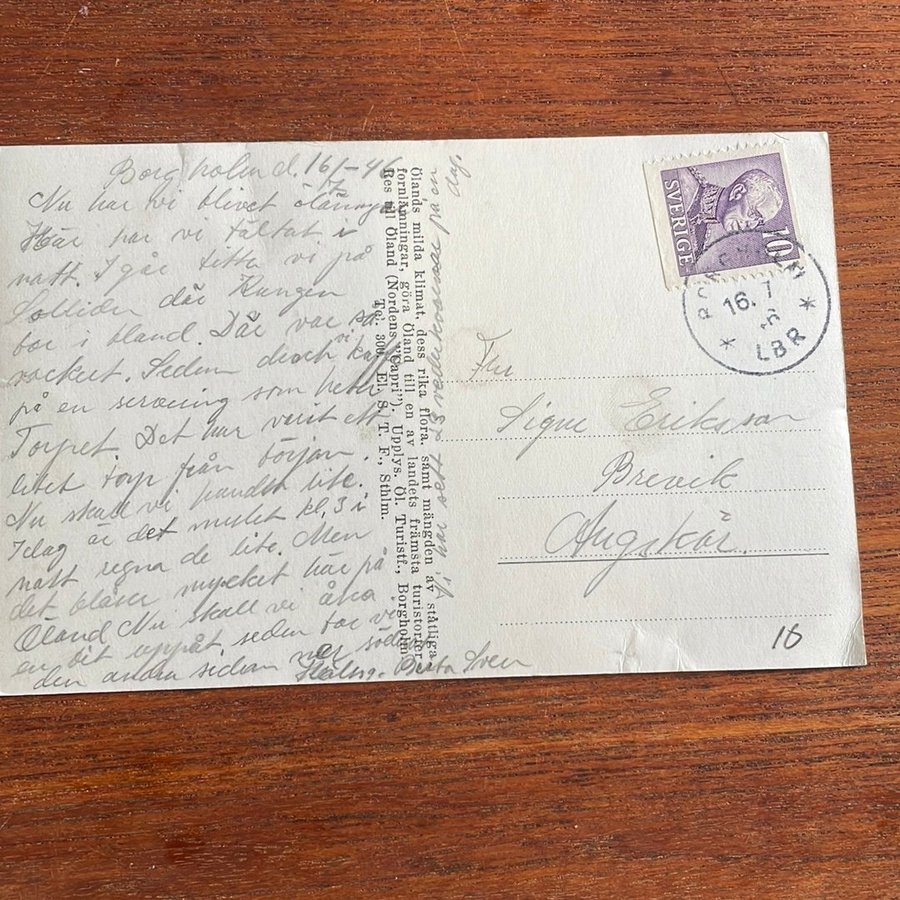 Borgholm d. 16/7-46
Nu har vi blivit ölänningar
Här har vi tältat i
natt. I går titta vi på
Sollider där Kungen
bor i bland. Där var så
vackert. Sedan drack vi kaffe
på en servering som heter
Torpet. Det har varit ett
litet torp från början.
Nu skall vi pandst lite.
Idag är det mulet kl. 3 i
natt regna de lite. Men
det blåser mycket här på
Öland Nu skall vi åka
en bit uppåt, seden tar vi
den andra sedan ner söder
Hälsn. Berta Sven
Vi har sett 23 väderkvarnar på en
dag.
Ölands milda klimat, dess rika flora, samt mängden av ståtliga
fornlämningar, göra Öland till en av landets främsta turistorter
Res till Öland (Nordens "Capri"). Upplys. Öl. Turistf., Borgholm
Tel. 300 El. S. T. F., Sthlm.
SVERIGE
10
BORGHOLM
16. 7
46
LBR
Fru
Signe Eriksson
Brevik
Augskär.
10